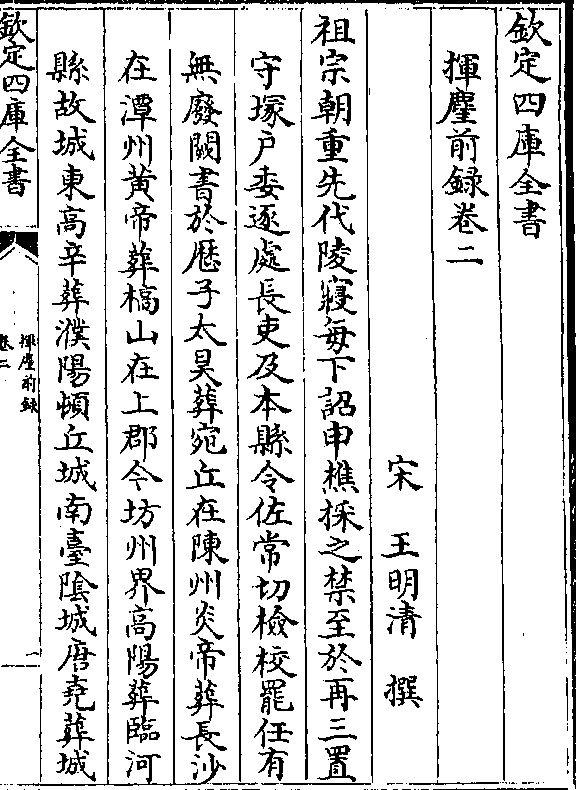 欽定四庫全書
揮麈前録卷二
宋 王明清 撰
祖宗朝重先代陵寢每下詔申樵採之禁至於再三置
守塚户委逐處長吏及本縣令佐常切檢校罷任有
無廢闕書於歴子太昊葬宛丘在陳州炎帝葬長沙
在潭州黄帝葬橋山在上郡今坊州界高陽葬臨河
縣故城東高辛葬濮陽頓丘城南臺隂城唐堯葬城
欽定四庫全書
揮麈前録
卷二
一